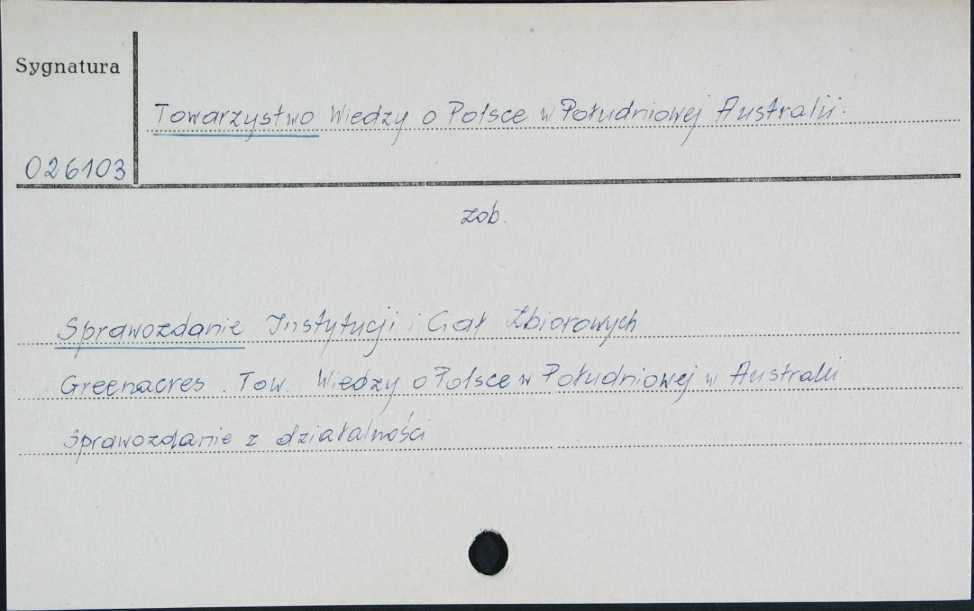 Sygnatura
Towarzystwo Wiedzy o Polsce w Południowej Australii.
026103
zob.
Sprawozdanie Instytucji i Ciał Zbiorowych
Greenacres. Tow. Wiedzy o Polsce w Południowej w Australii
Sprawozdanie z działalności